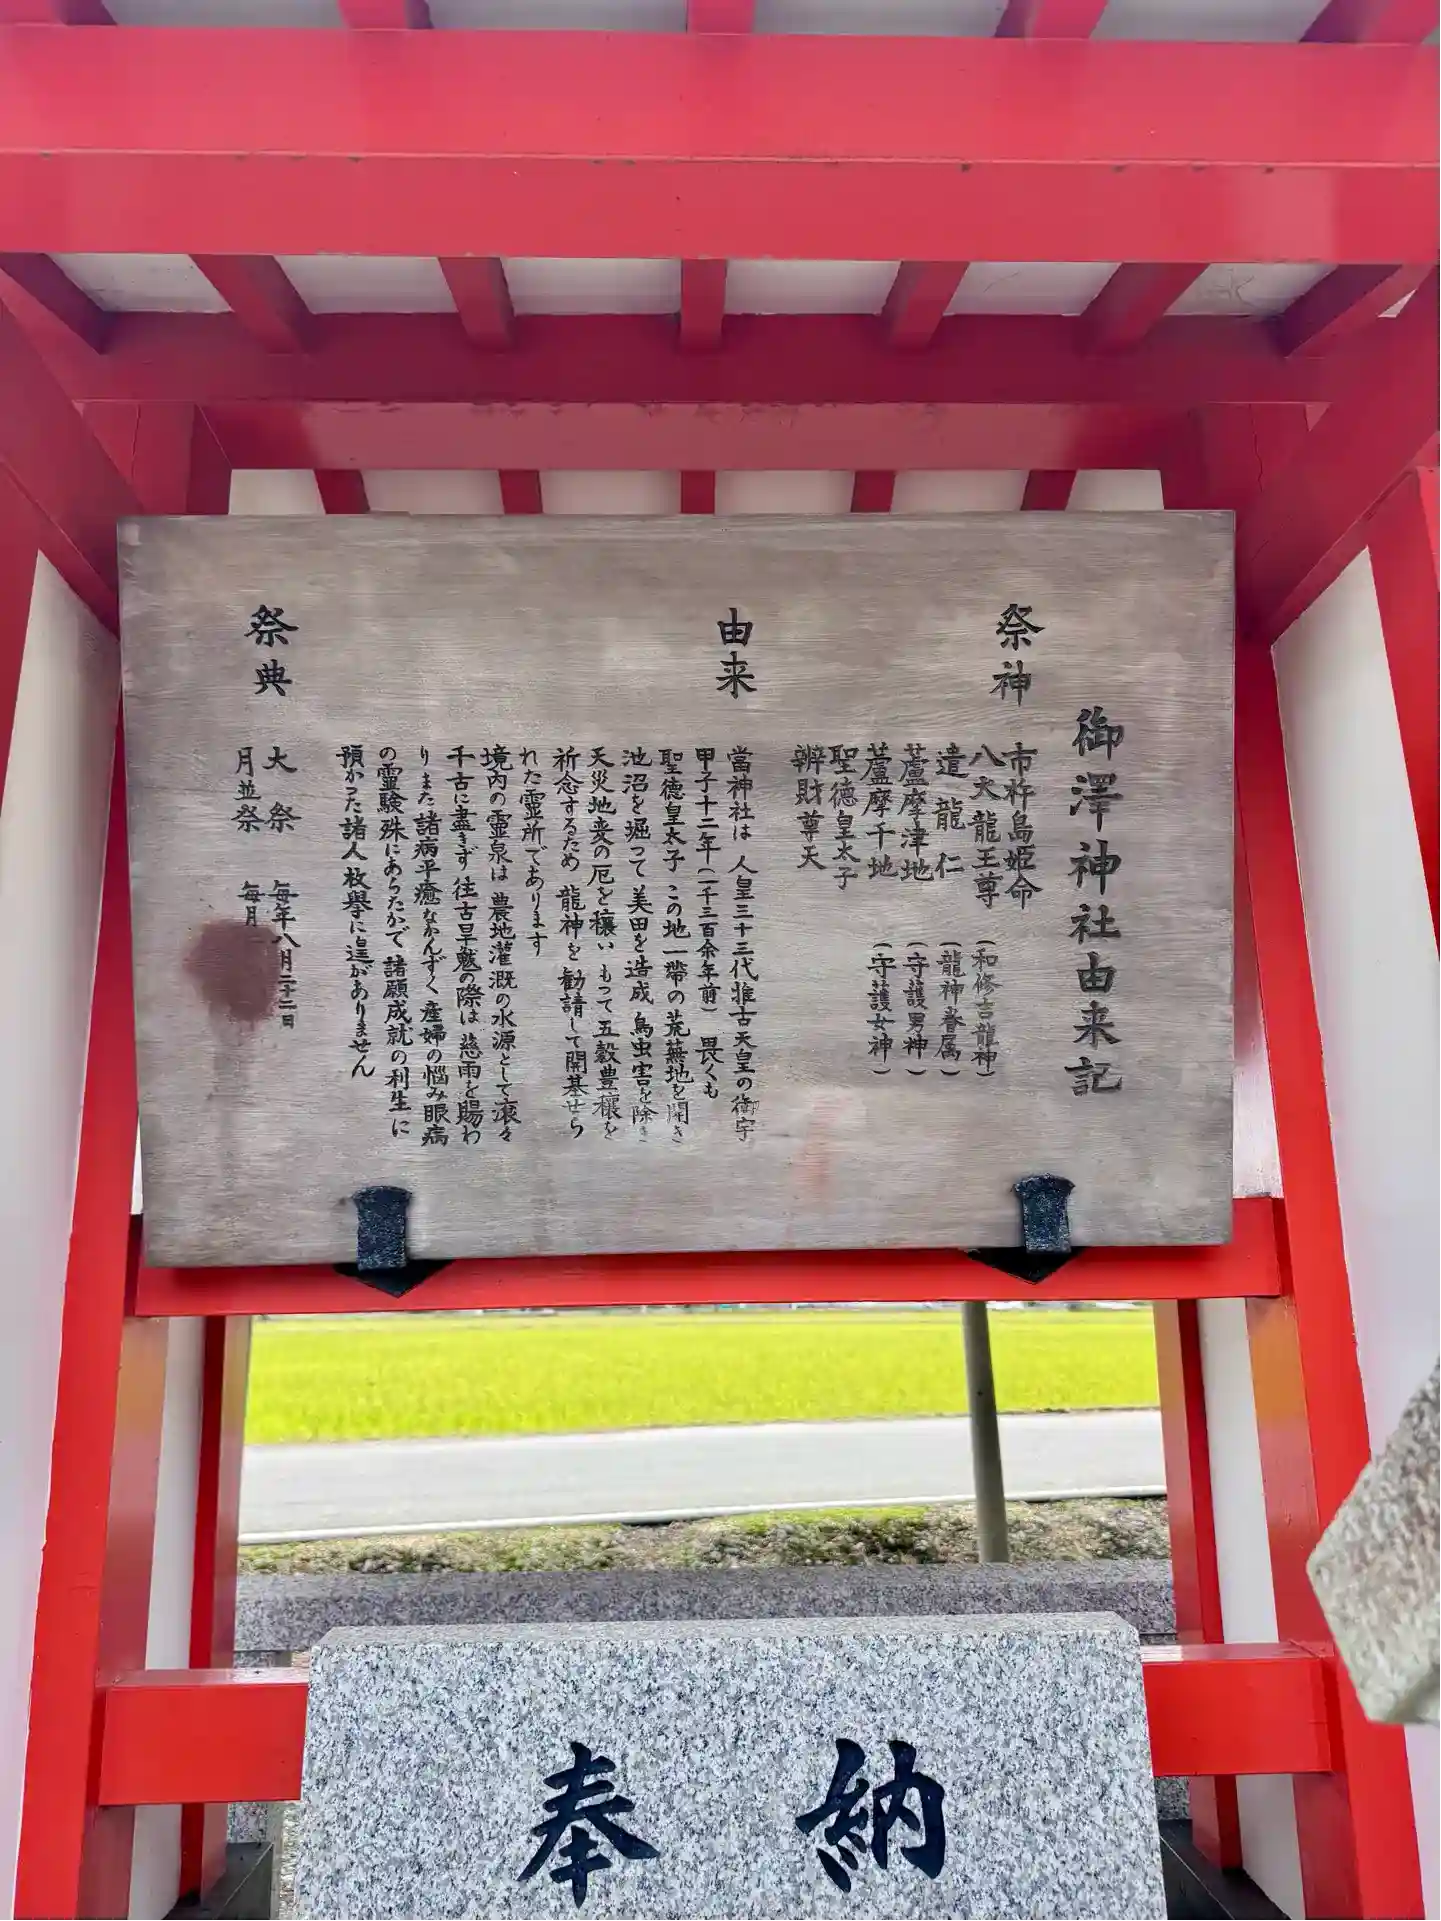 御澤神社由来記
祭神
市杵島姫命
八大龍王尊 (和修吉龍神)
遣龍仁 (龍神眷属)
蘆摩津地 (守護男神)
蘆摩千地 (守護女神)
聖徳皇太子
辨財尊天
由来
當神社は 人皇三十三代推古天皇の御宇
甲子十二年(一千三百余年前) 畏くも
聖徳皇太子 この地一帯の荒蕪地を開き
池沼を堀って 美田を造成 鳥虫害を除き
天災地変の厄を穰い もって五穀豊穰を
祈念するため 龍神を勧請して開基せら
れた霊所であります
境内の霊泉は 農地灌漑の水源として滾々
千古に盡きず 往古旱魃の際は 慈雨を賜わ
りまた諸病平癒なかんずく産婦の悩み眼病
の霊験殊にあらたかで 諸願成就の利生に
預かった諸人枚擧に遑がありません
祭典
大祭 毎年八月二十二日
月並祭 毎月
奉納